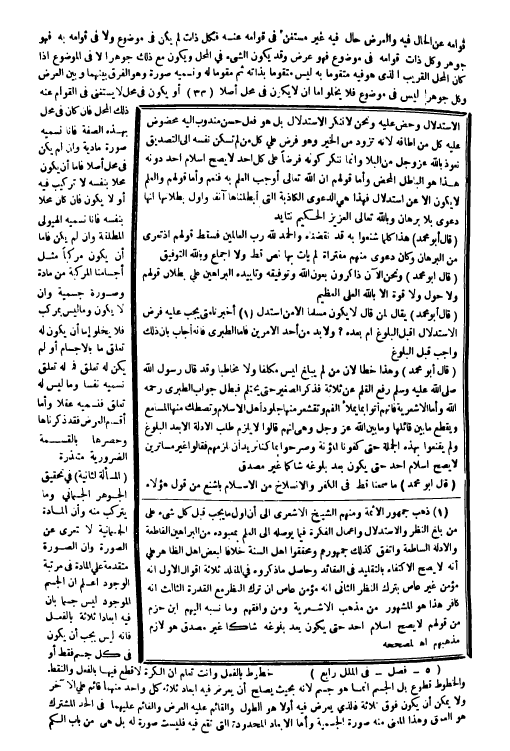 قوامه عن الحال فيه والعرض حال فيه غير مستغن في قوامه عنه فكل ذات لم يكن في موضوع ولا في قوامه به فهو
جوهر وكل ذات قوامه في موضوع فهو عرض وقد يكون الشيء في المحل ويكون مع ذلك جوهرا لا في الموضوع اذا
كان المحل القريب الذي هو فيه متقوما به ليس متقوما بذاته ثم مقوما له ونسميه صورة وهو الفرق بينهما وبين العرض
وكل جوهر ليس في موضوع فلا يخلو اما ان لا يكون في محل أصلا (٣٣) أو يكون في محل لا يستغني في القوام عنه
ذلك المحل فان كان في محل
بهذه الصفة فانا نسميه
صورة مادية وان لم يكن
في محل أصلا فاما أن يكون
محلا بنفسه لا تركيب فيه
أو لا يكون فان كان محلا
بنفسه فانا نسميه الهيولى
المطلقة وان لم يكن فاما
أن يكون مركبا مثل
أجسامنا المركبة من مادة
وصورة جسمية وان
لا يكون وماليس بمركب
فلا يخلو إما أن يكون له
تعلق ما بالاجسام أو لم
يكن له تعلق فما له تعلق
نسميه نفسا وما ليس له
تعلق فنسميه عقلا وأما
أقسام العرض فقد ذكرناها
وحصرها بالقسمة
الضرورية متعذرة
(المسألة الثانية) في تحقيق
الجوهر الجسماني وما
يتركب منه وأن المادة
الجسمانية لا تعرى عن
الصورة وان الصورة
متقدمة على المادة في مرتبة
الوجود اعلم ان الجسم
الموجود ليس جسما بان
فيه ابعادا ثلاثة بالفعل
فانه ليس يجب أن يكون
في كل جسم نقط أو
الاستدلال وحض عليه ونحن لا ننكر الاستدلال بل هو فعل حسن مندوب اليه محضوض
عليه كل من اطاقه لانه تزود من الخير وهو فرض على كل من لم تسكن نفسه الى التصديق
نعوذ بالله عز وجل من البلا وانما ننكر كونه فرضا على كل احد لا يصح اسلام احد دونه
هذا هو الباطل المحض وأما قولهم ان الله تعالى أوجب العلم به فنعم وأما قولهم والعلم
لا يكون الا عن استدلال فهذا هي الدعوى الكاذبة التي أبطلناها آنفا وأول بطلانها انها
دعوى بلا برهان وبالله تعالى العزيز الحكيم نتايد
(قال أبو محمد) هذا كلما شنعوا به قد نقضناه والحمد لله رب العالمين فسقط قولهم اذ تعرى
من البرهان وكان دعوى منهم مفتراة لم يات بها نص قط ولا اجماع وبالله التوفيق
(قال ابو محمد) ونحن الآن ذاكرون بعون الله وتوفيقه وتاييده البراهين على بطلان قولهم
ولا حول ولا قوة الا بالله العلي العظيم
(قال أبو محمد) يقال لمن قال لا يكون مسلما الا من استدل (١) أخبرنا متى يجب عليه فرض
الاستدلال اقبل البلوغ ام بعده ؟ ولا بد من أحد الامرين فاما الطبري فانه أجاب بان ذلك
واجب قبل البلوغ
(قال ابو محمد) وهذا خطا لان من لم يبلغ ليس مكلفا ولا مخاطبا وقد قال رسول الله
صلى الله عليه وسلم رفع القلم عن ثلاثة فذكر الصغير حتى يحتلم فبطل جواب الطبري رحمه
الله وأما الاشعرية فانهم أتوا بما يملأ الفم وتقشعر منها جلود أهل الاسلام وتصطك منها المسامع
ويقطع ما بين قائلها وما بين الله عز وجل وهي انهم قالوا لا يلزم طلب الادلة الا بعد البلوغ
ولم يقنعوا بهذه الجملة حتى كفونا المؤنة وصرحوا بما كنا نريد أن نلزمهم فقالوا غير مساترين
لا يصح اسلام احد حتى يكون بعد بلوغه شاكا غير مصدق
(قال ابو محمد) ما سمعنا قط في الكفر والانسلاخ من الاسلام باشنع من قول هؤلاء
(١) ذهب جمهور الائمة ومنهم الشيخ الاشعري الى أن اول ما يجب قبل كل شيء على
من بلغ النظر والاستدلال واعمال الفكرة فيما يوصله الى العلم بمعبوده من البراهين القاطعة
والادلة الساطعة واتفق كذلك جمهورهم ومحققوا اهل السنة خلافا لبعض اهل الظاهر على
أنه لا يصح الاكتفاء بالتقليد في العقائد وحاصل ماذكروه في المقلد ثلاثة اقوال الاول انه
مؤمن غير عاص بترك النظر الثاني انه مؤمن عاص ان ترك النظر مع القدرة الثالث انه
كافر هذا هو المشهور من مذهب الاشعرية ومن وافقهم وما نسبه اليهم ابن حزم
من قولهم لا يصح اسلام احد حتى يكون بعد بلوغه شاكا غير مصدق هو لازم
مذهبهم اه لمصححه
(٥ - فصل - في الملل رابع)
خطوط بالفعل وانت تعلم ان الكرة لا قطع فيها بالفعل والنقط
والخطوط قطوع بل الجسم انما هو جسم لانه بحيث يصلح أن يعرض فيه ابعاد ثلاثة كل واحد منها قائم على الآخر
ولا يمكن أن يكون فوق ثلاثة فالذي يعرض فيه أولا هو الطول والقائم عليه العرض والقائم عليهما في الحد المشترك
هو العمق وهذا المعنى منه صورة الجسمية وأما الابعاد المحدودة التي تقع فيه فليست صورة له بل هي من باب الكم